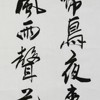 啼鳥夜來
風雨聲花